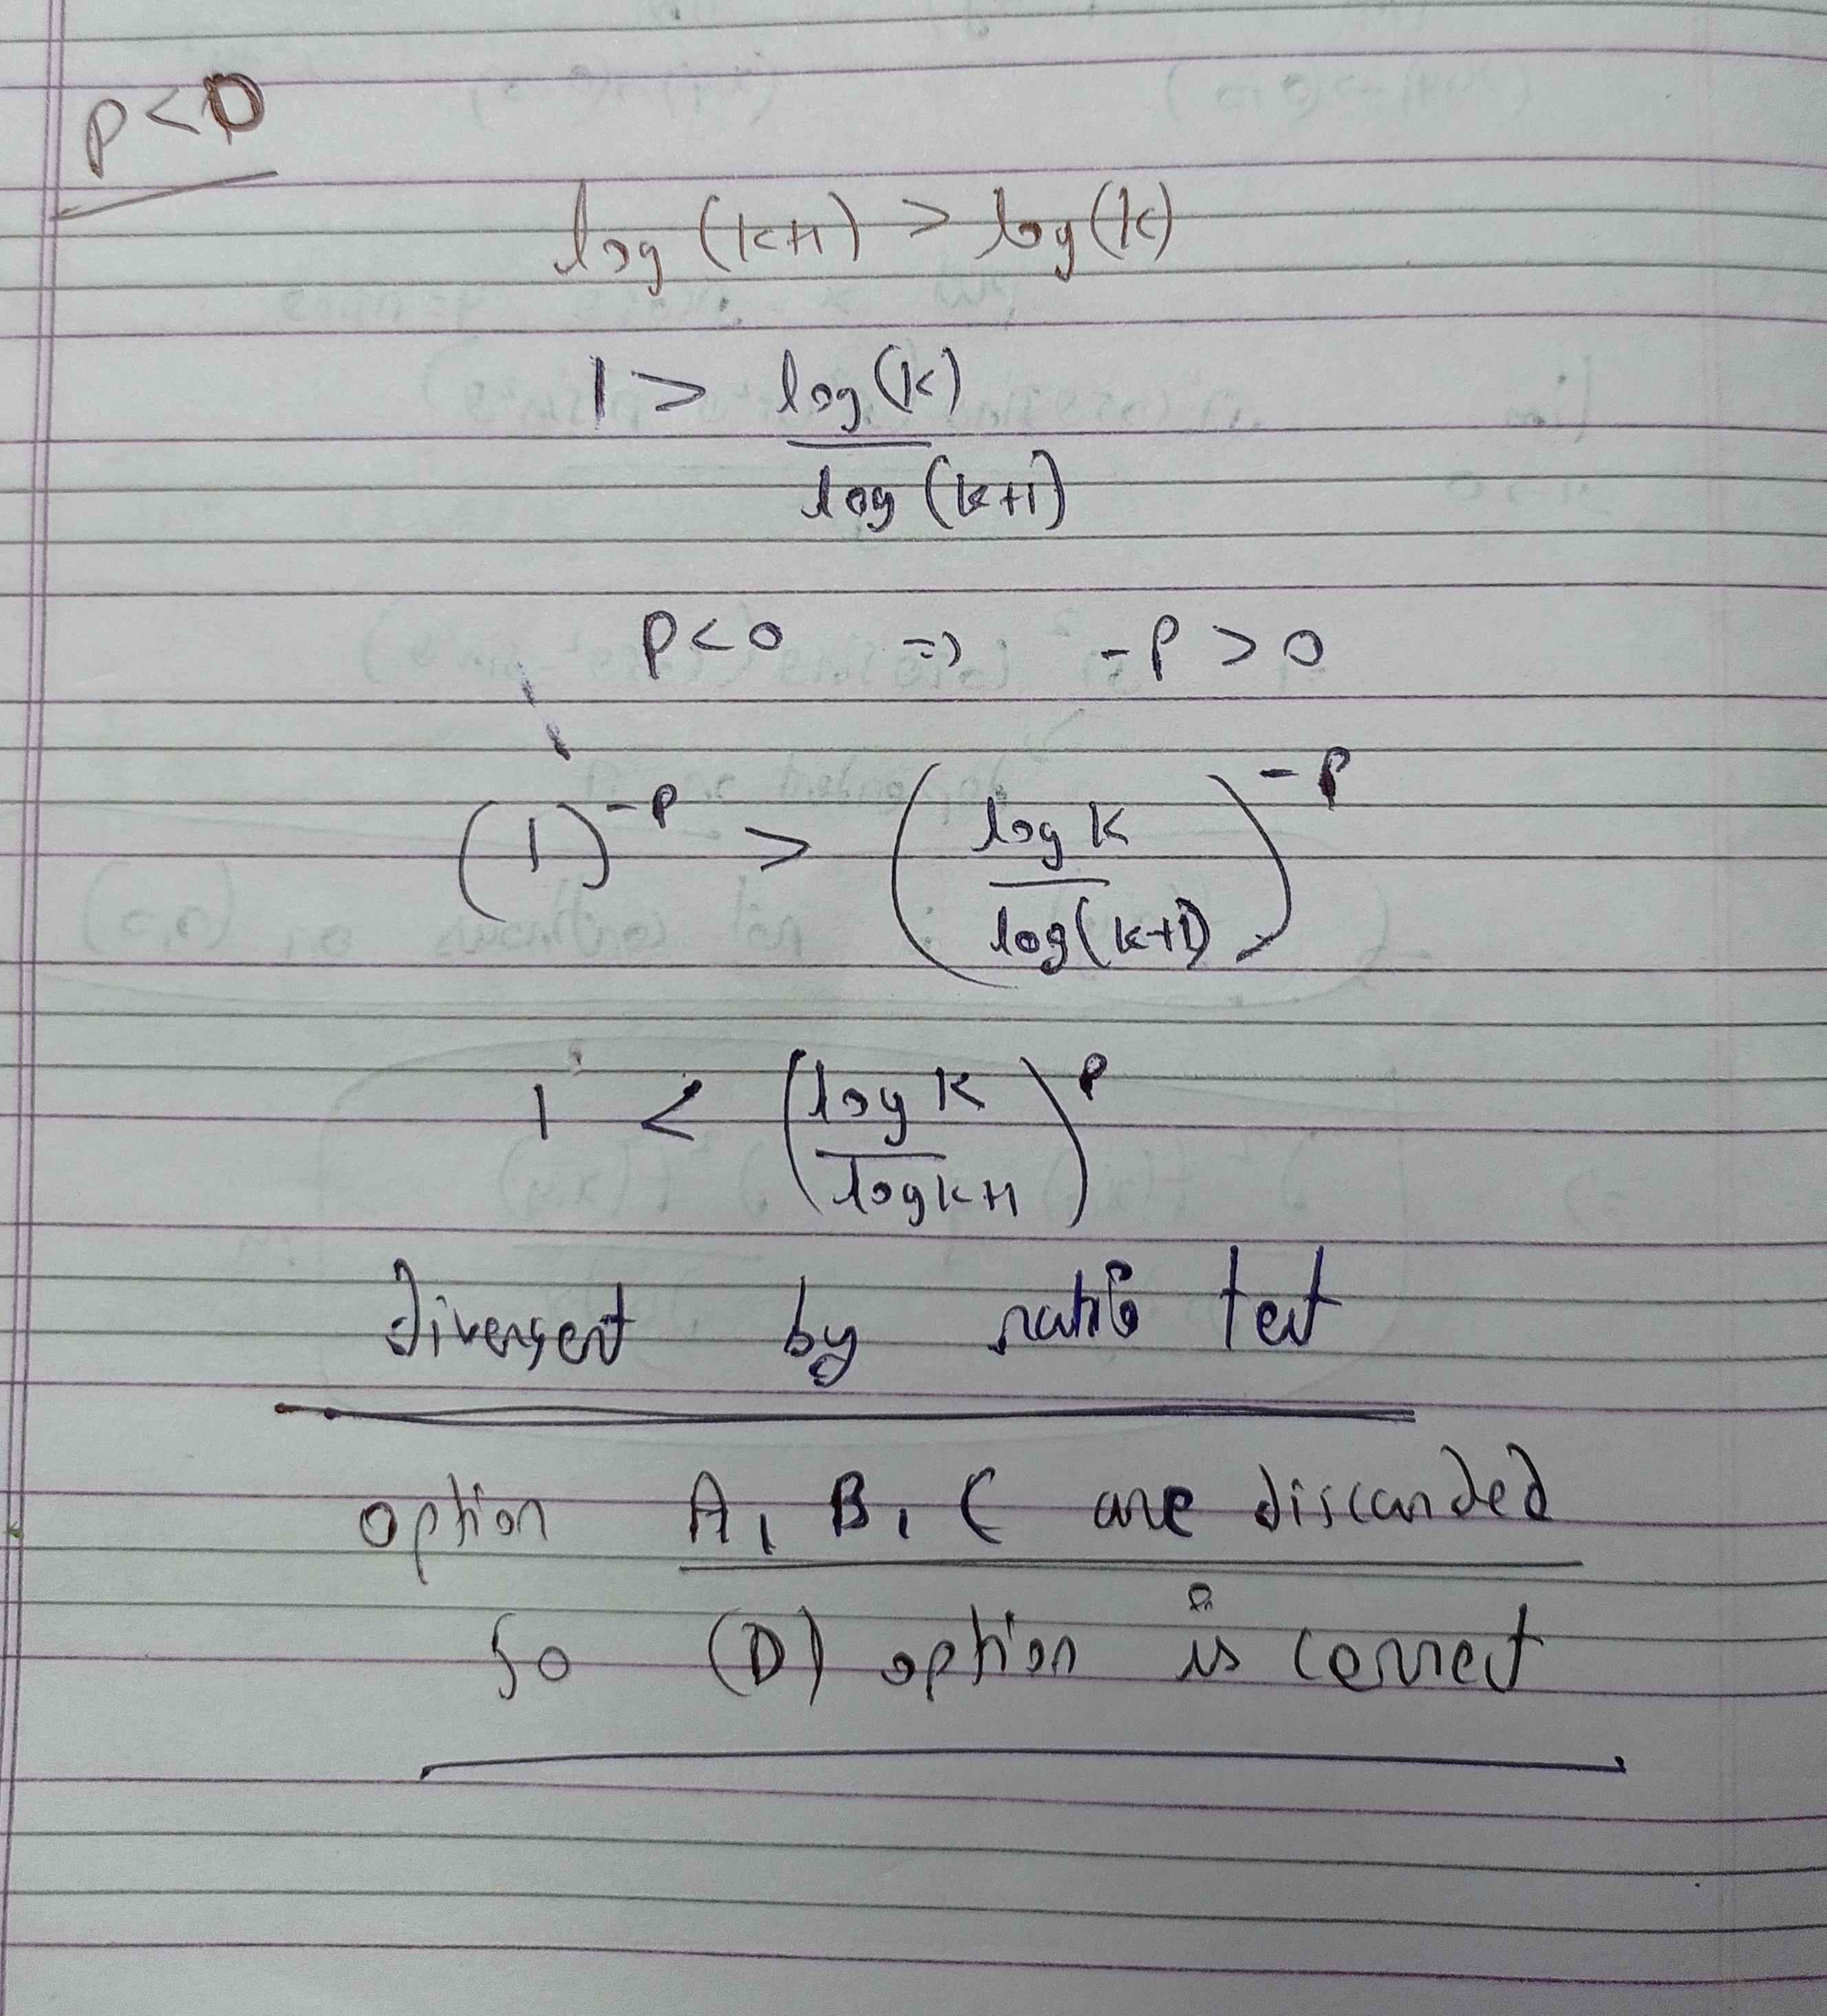 P<0
log (k+1) > log(k)
1 > log(k) / log (k+1)
P<0 => -P > 0
(1)^-P > (log k / log(k+1))^-P
1 < (log k / log k+1)^P
divergent by ratio test
option A, B, C are discarded
So (D) option is correct